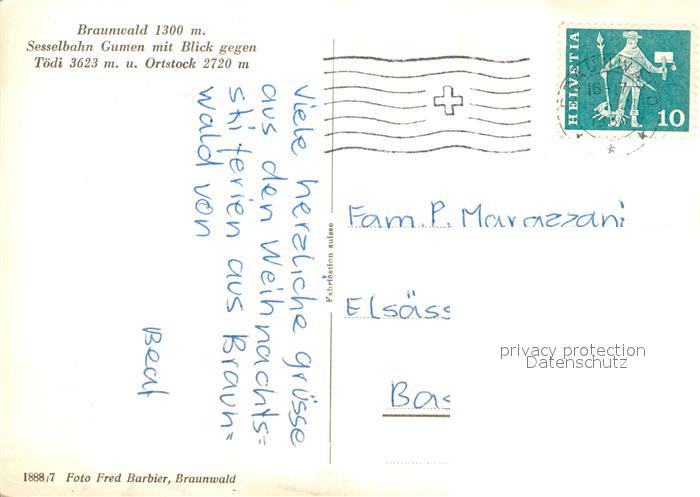 Braunwald 1300 m.
Sesselbahn Gumen mit Blick gegen
Tödi 3623 m. u. Ortstock 2720 m
Viele herzliche grüsse
aus den Weihnachts=
skiferien aus Braun=
wald von
Beat
Fabrication suisse
HELVETIA
10
Fam. P. Marazzani
Elsäss
Bas
privacy protection
Datenschutz
1888/7 Foto Fred Barbier, Braunwald